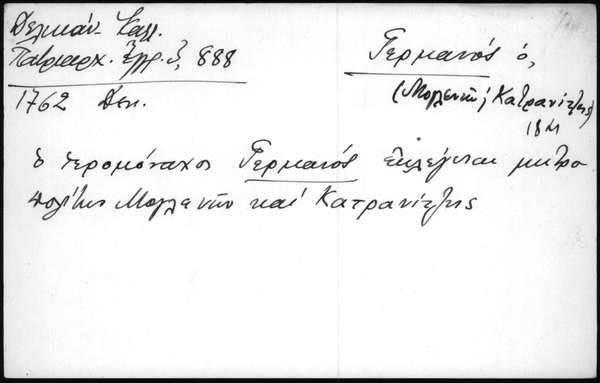 Δελικάν. Καλλ.
Πατριαρχ. Ἔγγρ. 3, 888
1762 Δεκ.
Γερμανός ὁ,
(Μογλενῶν & Κατρανίτζης)
ὁ ἱερομόναχος Γερμανός ἐκλέγεται μητρο
πολίτης Μογλενῶν καί Κατρανίτζης